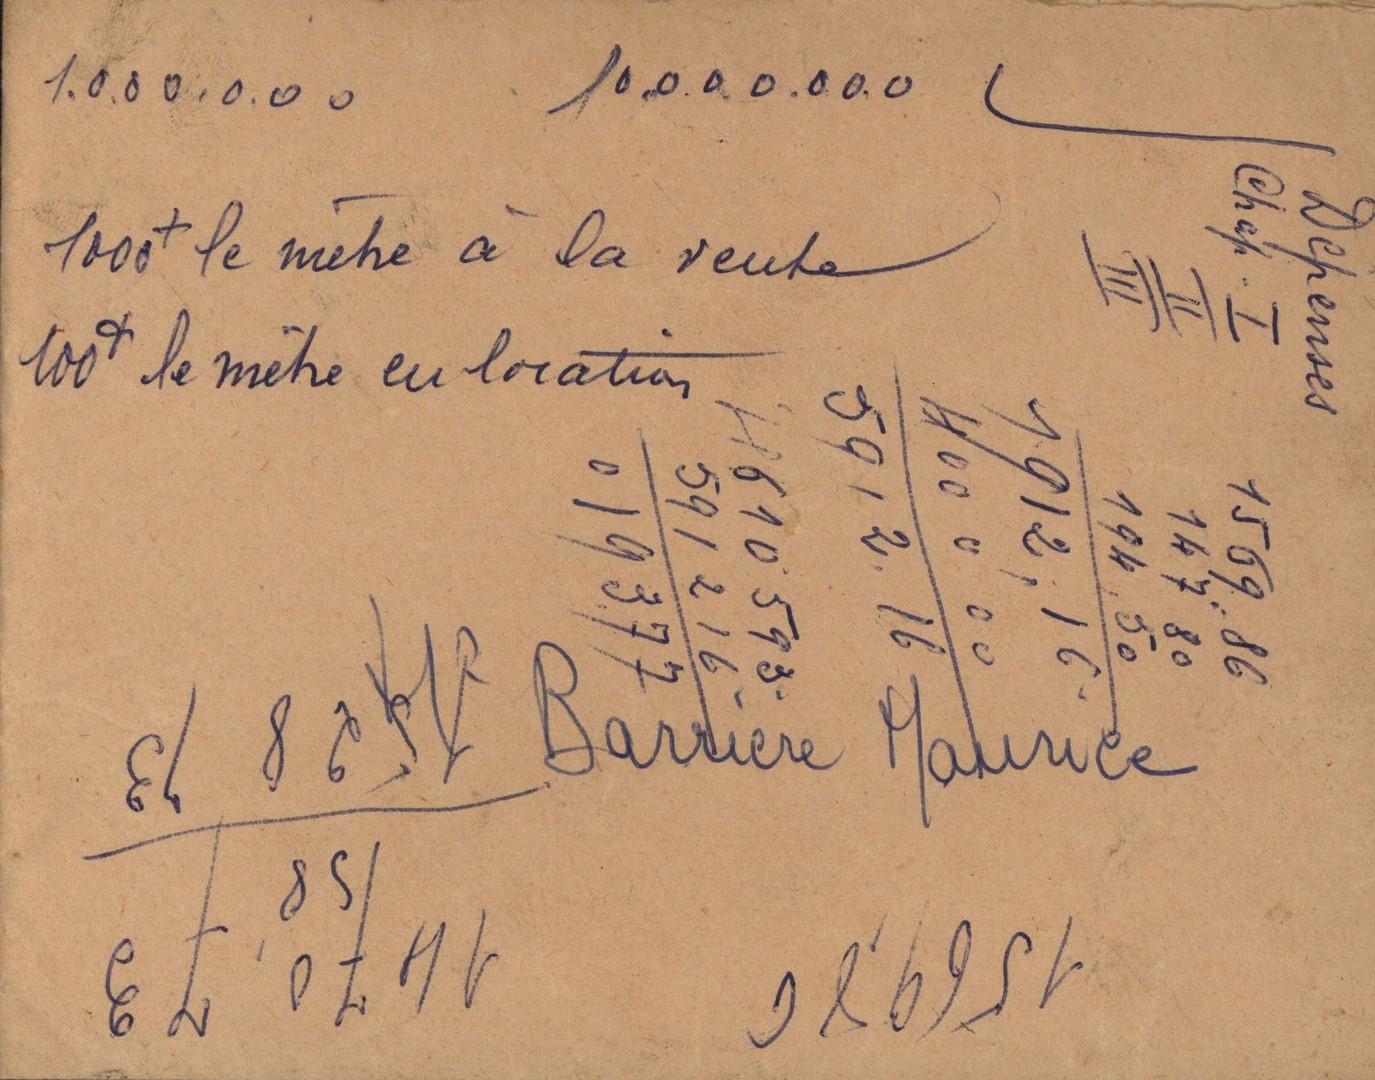 1.000.000
10.000.000
1000+ le mètre à la vente
100+ le mètre en location
Dépenses
Chap. I
II
III
1569.86
147.80
194.50
1912,16.
4000 00
5912.16
610.593.
591216.
019377
Barrière Maurice
1569,86
1470,
58